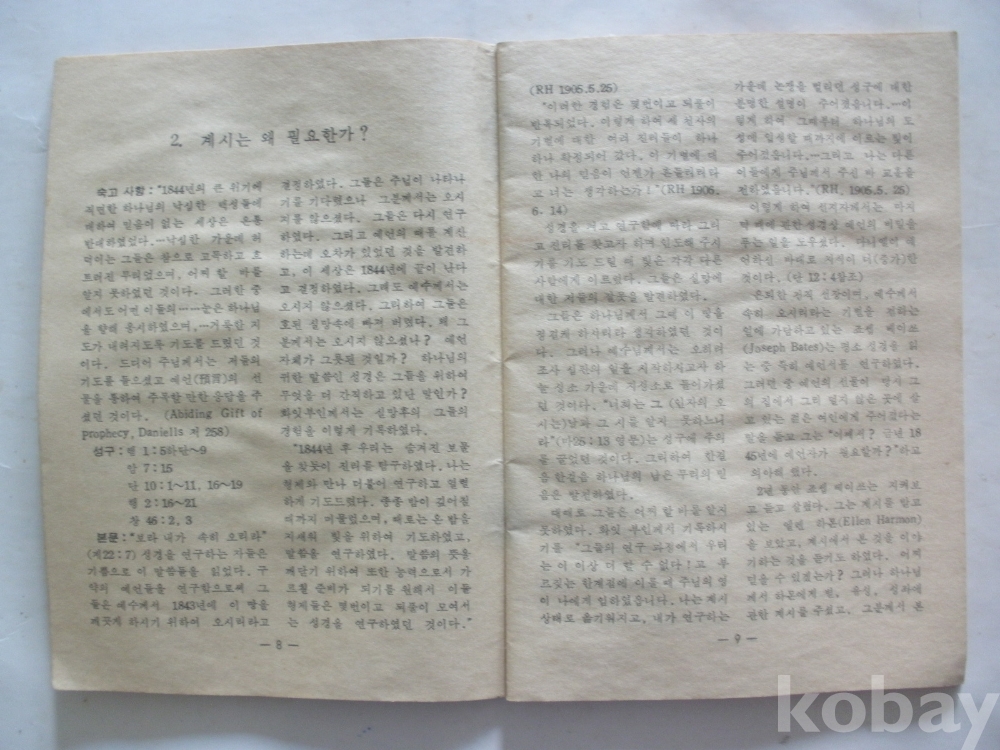 2. 계시는 왜 필요한가?
숙고 사항: "1844년의 큰 위기에
직면한 하나님의 낙심한 백성들에
대하여 믿음이 없는 세상은 온통
반대하였었다.…낙심한 가운데 처
하여있는 그들은 참으로 고독하고 흐
트러진 무리였으며, 어찌 할 바를
알지 못하였던 것이다. 그러한 중
에서도 어떤 이들의……눈은 하나님
을 향해 응시하였으며,…거룩한 지
도가 내려지도록 기도를 드렸던 것
이다. 드디어 주님께서는 저들의
기도를 들으셨고 예언(預言)의 선
물을 통하여 주목할 만한 응답을 주
셨던 것이다. (Abiding Gift of
prophecy, Daniells 저 258)
성구: 벧 1:5하단~9
암 7:15
단 10:1~11, 16~19
행 2:16~21
창 46:2, 3
본문: "보라 내가 속히 오리라"
(계22:7) 성경을 연구하는 자들은
기쁨으로 이 말씀들을 읽었다. 구
약의 예언들을 연구함으로써 그
들은 예수께서 1843년에 이 땅을
깨끗게 하시기 위하여 오시리라고
결정하였다. 그들은 주님이 나타나
기를 기다렸으나 그분께서는 오시
지를 않으셨다. 그들은 다시 연구
하였다. 그리고 예언의 때를 계산
하는데 오차가 있었던 것을 발견하
고, 이 세상은 1844년에 끝이 난다
고 결정하였다. 그래도 예수께서는
오시지 않으셨다. 그리하여 그들은
혼된 실망속에 빠져 버렸다. 왜 그
분께서는 오시지 않으셨나? 예언
자체가 그릇된 것일까? 하나님의
귀한 말씀인 성경은 그들을 위하여
무엇을 더 간직하고 있단 말인가?
화잇부인께서는 실망후의 그들의
경험을 이렇게 기록하였다.
"1844년 후 우리는 숨겨진 보물
을 찾듯이 진리를 탐구하였다. 나는
형제와 만나 더불어 연구하고 열렬
하게 기도드렸다. 종종 밤이 깊어질
때까지 머물었으며, 때로는 온 밤을
지새워 빛을 위하여 기도하였고,
말씀을 연구하였다. 말씀의 뜻을
깨닫기 위하여 또한 능력으로서 가
르칠 준비가 되기를 원해서 이들
형제들은 몇번이고 되풀이 모여서
는 성경을 연구하였던 것이다."
— 8 —
(RH 1905.5.25)
"이러한 경험은 몇번이고 되풀이
반복되었다. 이렇게 하여 세 천사의
기별에 대한 여러 진리들이 하나
하나 확정되어 갔다. 이 기별에 대
한 나의 믿음이 언젠가 흔들리리라
고 너는 생각하는가!" (RH 1906.
6. 14)
성경을 가고 연구함에 따라 그리
고 진리를 찾고자 하여 인도해 주시
기를 기도 드릴 때 빛은 각각 다른
사람에게 이르렀다. 그들은 실망에
대한 저들의 잘못을 발견하였다.
그들은 하나님께서 그때 이 땅을
정결케 하시리라 생각하였던 것이
다. 그러나 예수님께서는 오히려
조사 심판의 일을 시작하시고자 하
늘 성소 가운데 지성소로 들어가셨
던 것이다. "너희는 그 (인자의 오
시는)날과 그 시를 알지 못하느니
라"(마25:13 영문)는 성구에 주의
를 끌었던 것이다. 그리하여 한걸
음 한걸음 하나님의 남은 무리의 믿
음은 발전하였다.
때때로 그들은 어찌 할 바를 알지
못하였다. 화잇 부인께서 기록하시
기를 "그들의 연구 과정에서 우리
는 이 이상 더 할 수 없다!고 부
르짖는 한계점에 이를 때 주님의 영
이 나에게 임하였읍니다. 나는 계시
상태로 옮기워지고, 내가 연구하는
가운데 논쟁을 벌리던 성구에 대한
분명한 설명이 주어졌읍니다.…이
렇게 하여 그때부터 하나님의 도
성에 입성할 때까지에 이르는 빛이
주어졌읍니다.…그리고 나는 다른
이들에게 주님께서 주신 바 교훈을
전하였읍니다."(RH, 1905.5.25)
이렇게 하여 선지자께서는 마지
막 때에 관한 성경상 예언의 비밀을
푸는 일을 도우셨다. 다니엘이 예
언하신 바대로 지식이 더(증가)한
것이다. (단 12:4참조)
은퇴한 전직 선장이며, 예수께서
속히 오시리라는 기별을 전하는
일에 가담하고 있는 조셉 베이쯔
(Joseph Bates)는 평소 성경을 읽
는 중 특히 예언서를 연구하였다.
그러던 중 예언의 선물이 명사 그
의 집에서 그리 멀지 않은 곳에 살
고 있는 젊은 여인에게 주어졌다는
말을 듣고 그는 "어째서? 금년 18
45년에 예언자가 필요한가?"하고
의아해 했다.
2년 동안 조셉 베이쯔는 지켜보
고 듣고 살폈다. 그는 계시를 받고
있는 엘렌 하몬(Ellen Harmon)
을 보았고, 계시에서 본 것을 이야
기하는 것을 듣기도 하였다. 어찌
믿을 수 있겠는가? 그러나 하나님
께서 하몬에게 천, 음성, 성좌에
관한 계시를 주셨고, 그분께서 본
— 9 —
kobay